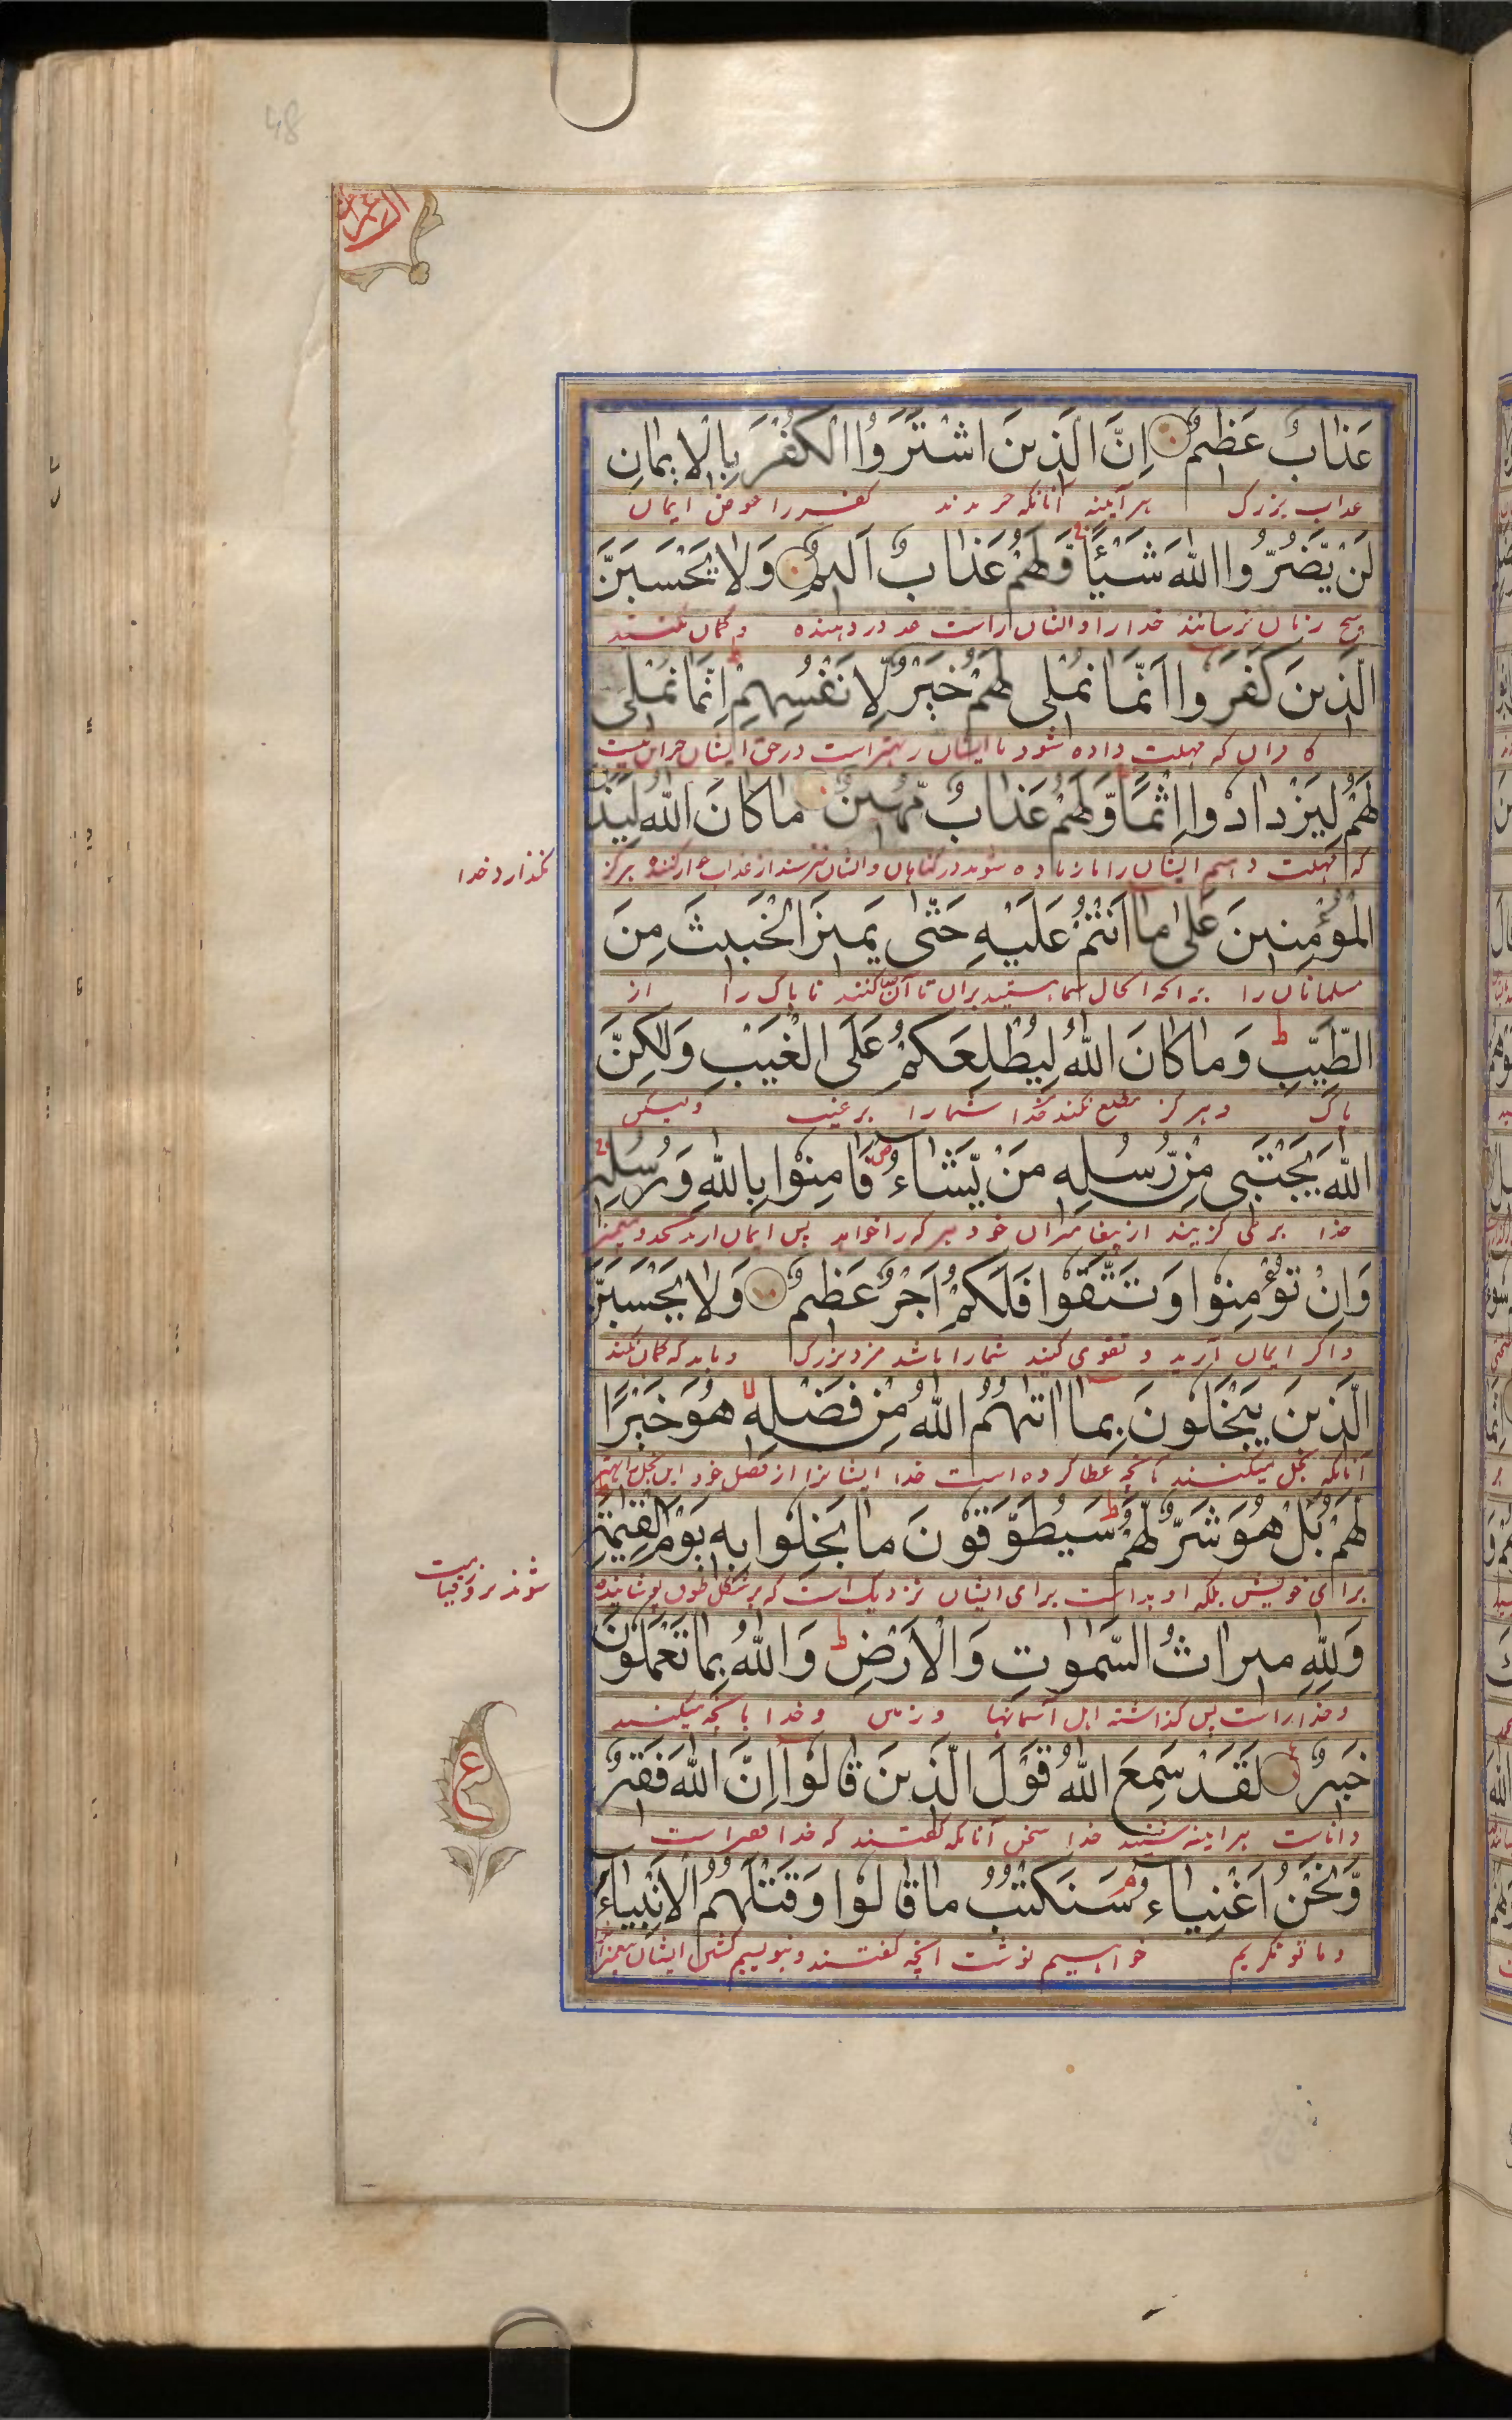 48
عَذَابٌ عَظِيمٌ اِنَّ الَّذِينَ اشْتَرَوُا الْكُفْرَ بِالْاِيمَانِ
عذاب بزرگ هرآیینه آنانکه خریدند کفر را عوض ایمان
لَنْ يَّضُرُّوا اللّٰهَ شَيْئًا وَلَهُمْ عَذَابٌ اَلِيمٌ وَلَا يَحْسَبَنَّ
هیچ زیان نرسانند خدا را و ایشان راست درد دهنده و گمان نکنند
الَّذِينَ كَفَرُوا اَنَّمَا نُمْلِى لَهُمْ خَيْرٌ لِّاَنْفُسِهِمْ اِنَّمَا نُمْلِى
که مهلت داده شود ایشان بهتر است در حق ایشان جز این نیست
لَهُمْ لِيَزْدَادُوا اِثْمًا وَّلَهُمْ عَذَابٌ مُّهِينٌ مَا كَانَ اللّٰهُ لِيَذَرَ
که مهلت دهیم ایشان را تا زیاده شوند در گناهان و ایشان عذاب هرگز
نگذارد خدا
الْمُؤْمِنِينَ عَلٰى مَا اَنْتُمْ عَلَيْهِ حَتّٰى يَمِيزَ الْخَبِيثَ مِنَ
مسلمانان را شما هستید بران تا آن کنند ناپاک را از
الطَّيِّبِ وَمَا كَانَ اللّٰهُ لِيُطْلِعَكُمْ عَلَى الْغَيْبِ وَلٰكِنَّ
پاک و هرگز مطلع نکند خدا شما را بر غیب ولیکن
اللّٰهَ يَجْتَبِى مِنْ رُّسُلِهٖ مَنْ يَّشَاءُ فَاٰمِنُوْا بِاللّٰهِ وَرُسُلِهٖ
خدا بر می گزیند از پیغامبران خود هر که را خواهد پس ایمان آرید بخدا
وَاِنْ تُؤْمِنُوْا وَتَتَّقُوْا فَلَكُمْ اَجْرٌ عَظِيمٌ وَلَا يَحْسَبَنَّ
و اگر ایمان آرید و تقوی کنید شما را باشد مزد بزرگ و باید که گمان نکنند
الَّذِينَ يَبْخَلُوْنَ بِمَا اٰتٰهُمُ اللّٰهُ مِنْ فَضْلِهٖ هُوَ خَيْرًا
آنانکه بخل میکنند بآنچه عطا کرده است خدا ایشانرا از فضل خود این بخل را بهتر
لَّهُمْ بَلْ هُوَ شَرٌّ لَّهُمْ سَيُطَوَّقُوْنَ مَا بَخِلُوْا بِهٖ يَوْمَ الْقِيٰمَةِ
برای خویش بلکه او بد است برای ایشان نزدیک است که بر شکل طوق پوشانیده
شوند بروز قیامت
وَلِلّٰهِ مِيرَاثُ السَّمٰوٰتِ وَالْاَرْضِ وَاللّٰهُ بِمَا تَعْمَلُوْنَ
و خدا راست پس گذاشته اهل آسمانها و زمین و خدا بآنچه میکنید
خَبِيرٌ لَقَدْ سَمِعَ اللّٰهُ قَوْلَ الَّذِينَ قَالُوْا اِنَّ اللّٰهَ فَقِيرٌ
داناست هرآیینه شنید خدا سخن آنانکه گفتند که خدا فقیر است
ع
وَّنَحْنُ اَغْنِيَاءُ سَنَكْتُبُ مَا قَالُوْا وَقَتْلَهُمُ الْاَنْبِيَاءَ
و ما توانگریم خواهیم نوشت آنچه گفتند و بنویسیم کشتن ایشان